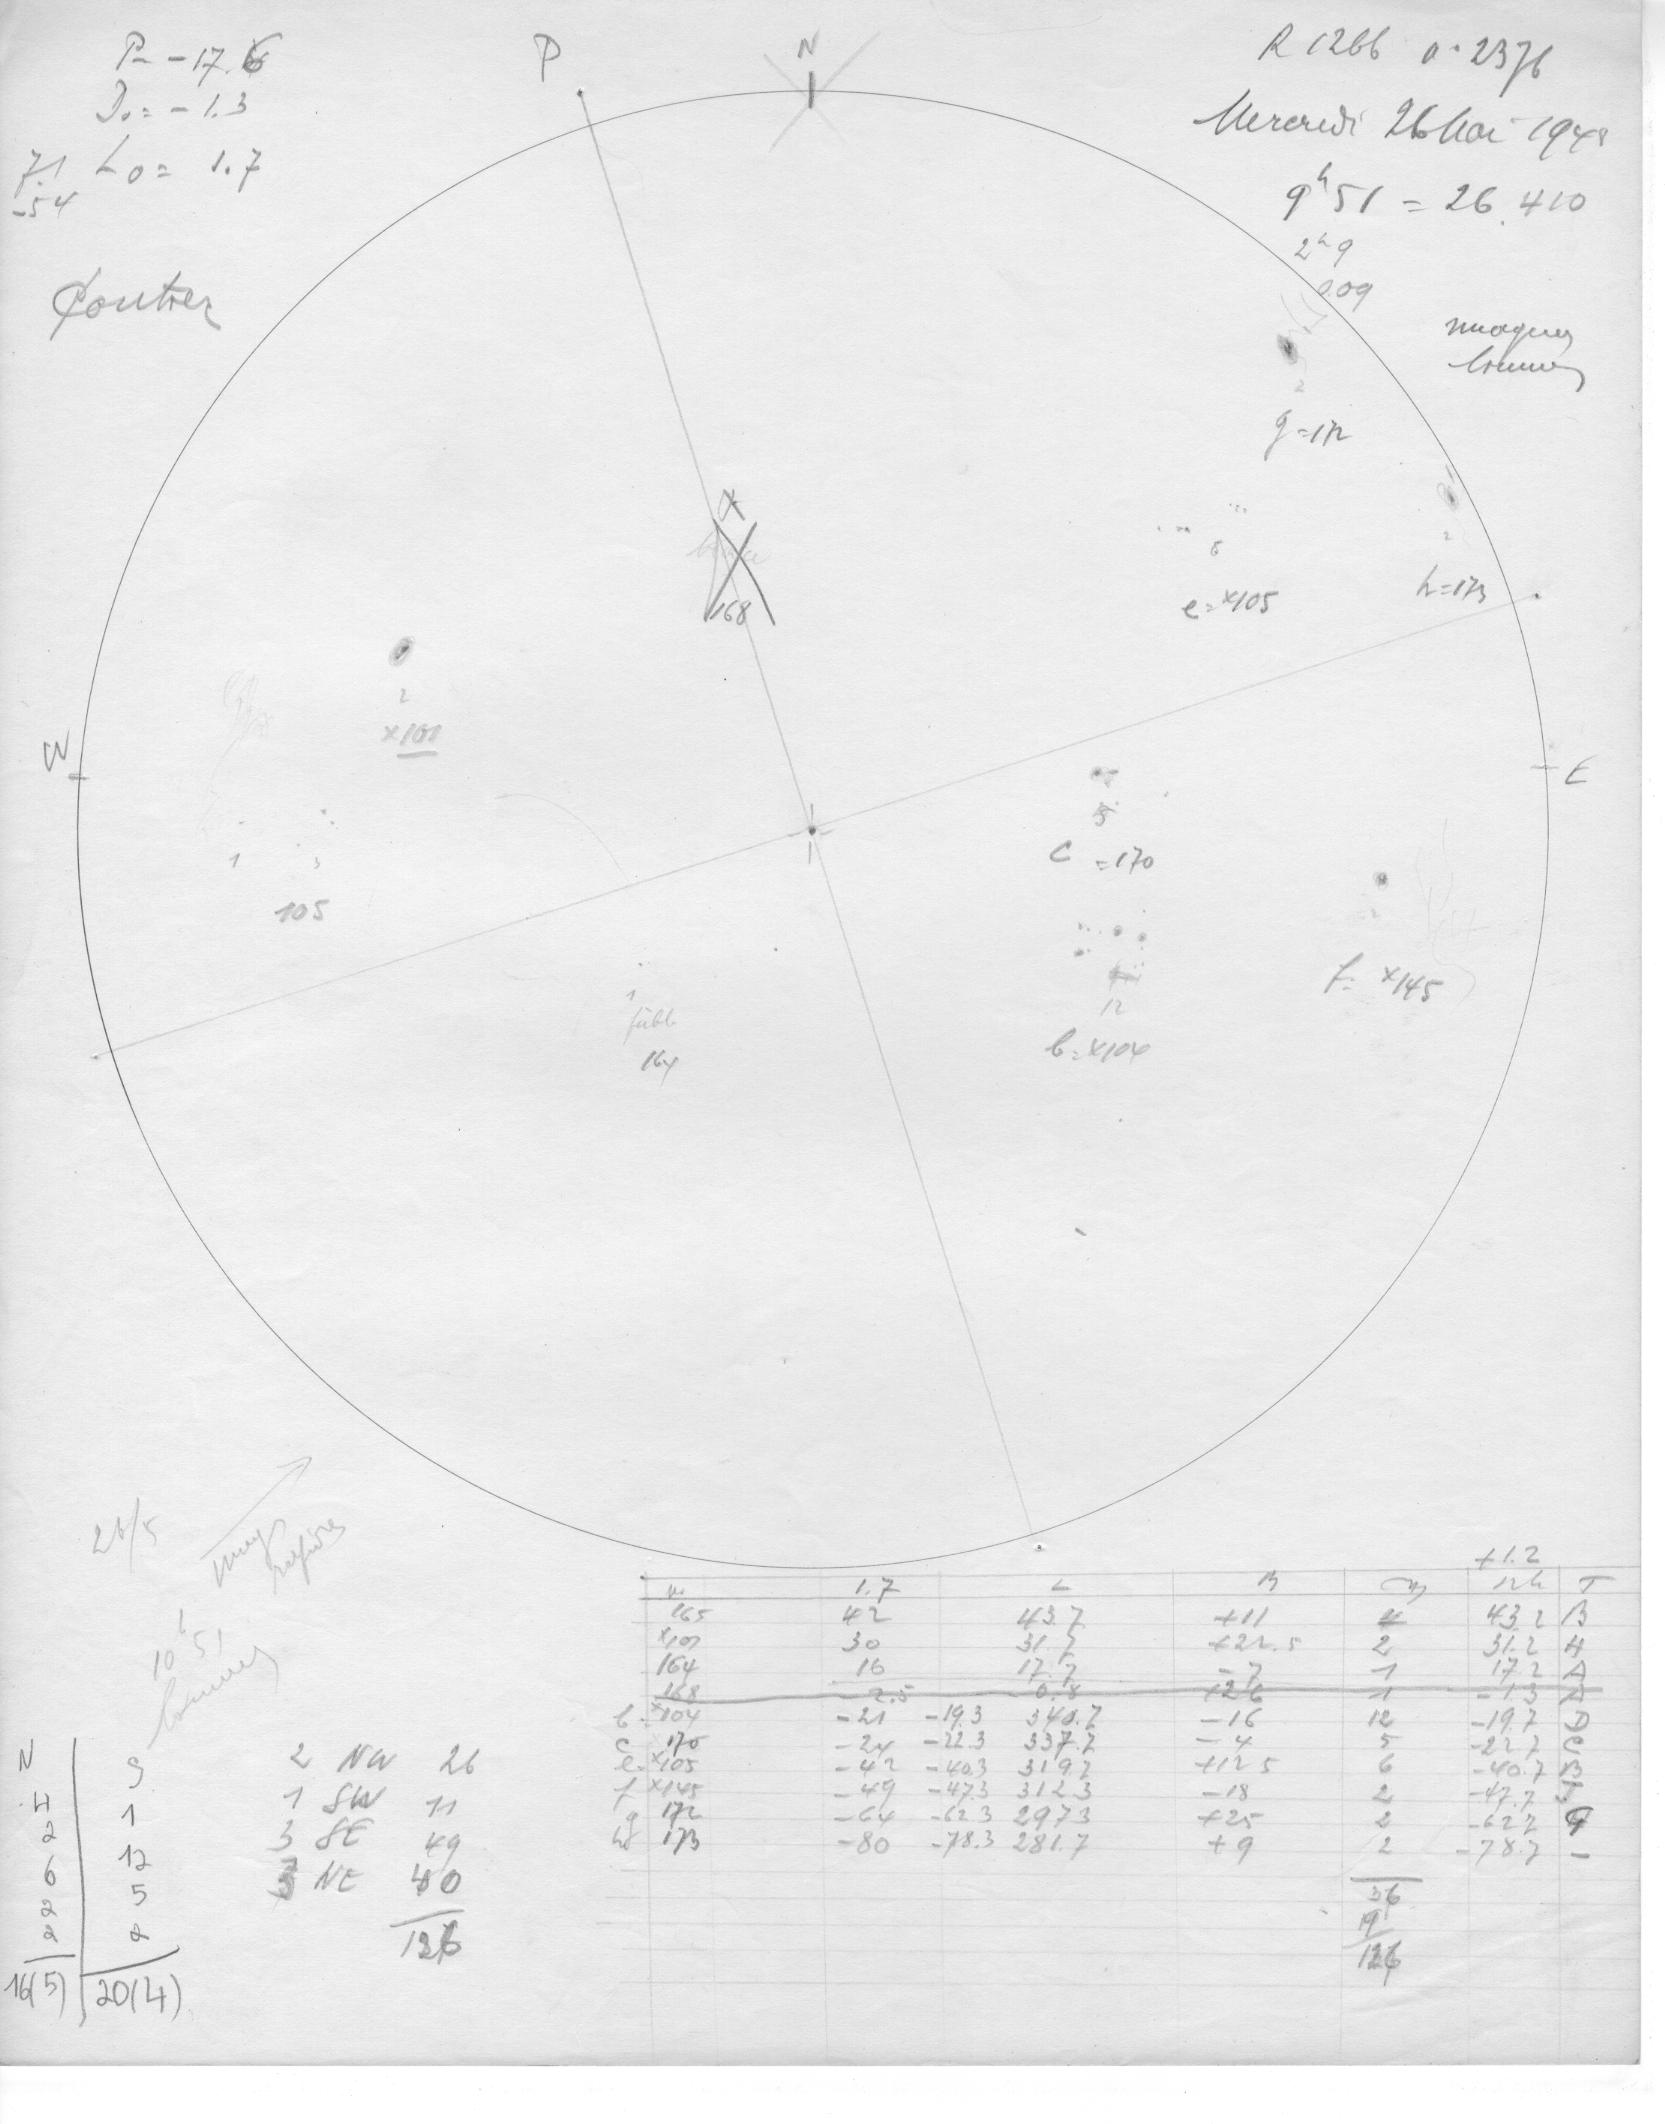 P = -17.6
D0 = -1.3
L0 = 1.7
7.1
-5.4
P
N
R 1266 n. 2376
Mercredi 26 Mai 1948
9h51 = 26.410
2h9
0.09
2
g = 172
6
e = x105
2
h = 173
168
2
x101
W
E
1
3
105
5
C = 170
2
f = x145
12
b = x104
1
164
26/5
10h51
+1.2
n. 1.7 L B 12h T
165 42 43.7 +11 4 43.2 B
x101 30 31.7 +22.5 2 31.2 H
164 16 17.7 -7 1 17.2 A
168 -2.5 -0.8 +26 1 -1.3 A
b = x104 -21 -19.3 340.7 -16 12 -19.7 D
c 170 -24 -22.3 337.7 -4 5 -22.7 C
e = x105 -42 -40.3 319.7 +12.5 6 -40.7 B
f x145 -49 -47.3 312.3 -18 2 -47.7 J
g 172 -64 -62.3 297.3 +25 2 -62.7 G
h 173 -80 -78.3 281.7 +9 2 -78.7 -
36
126
N S
4 1
2 12
6 5
2 2
2
16(5) 20(4)
2 NW 26
1 SW 11
3 SE 49
3 NE 40
126